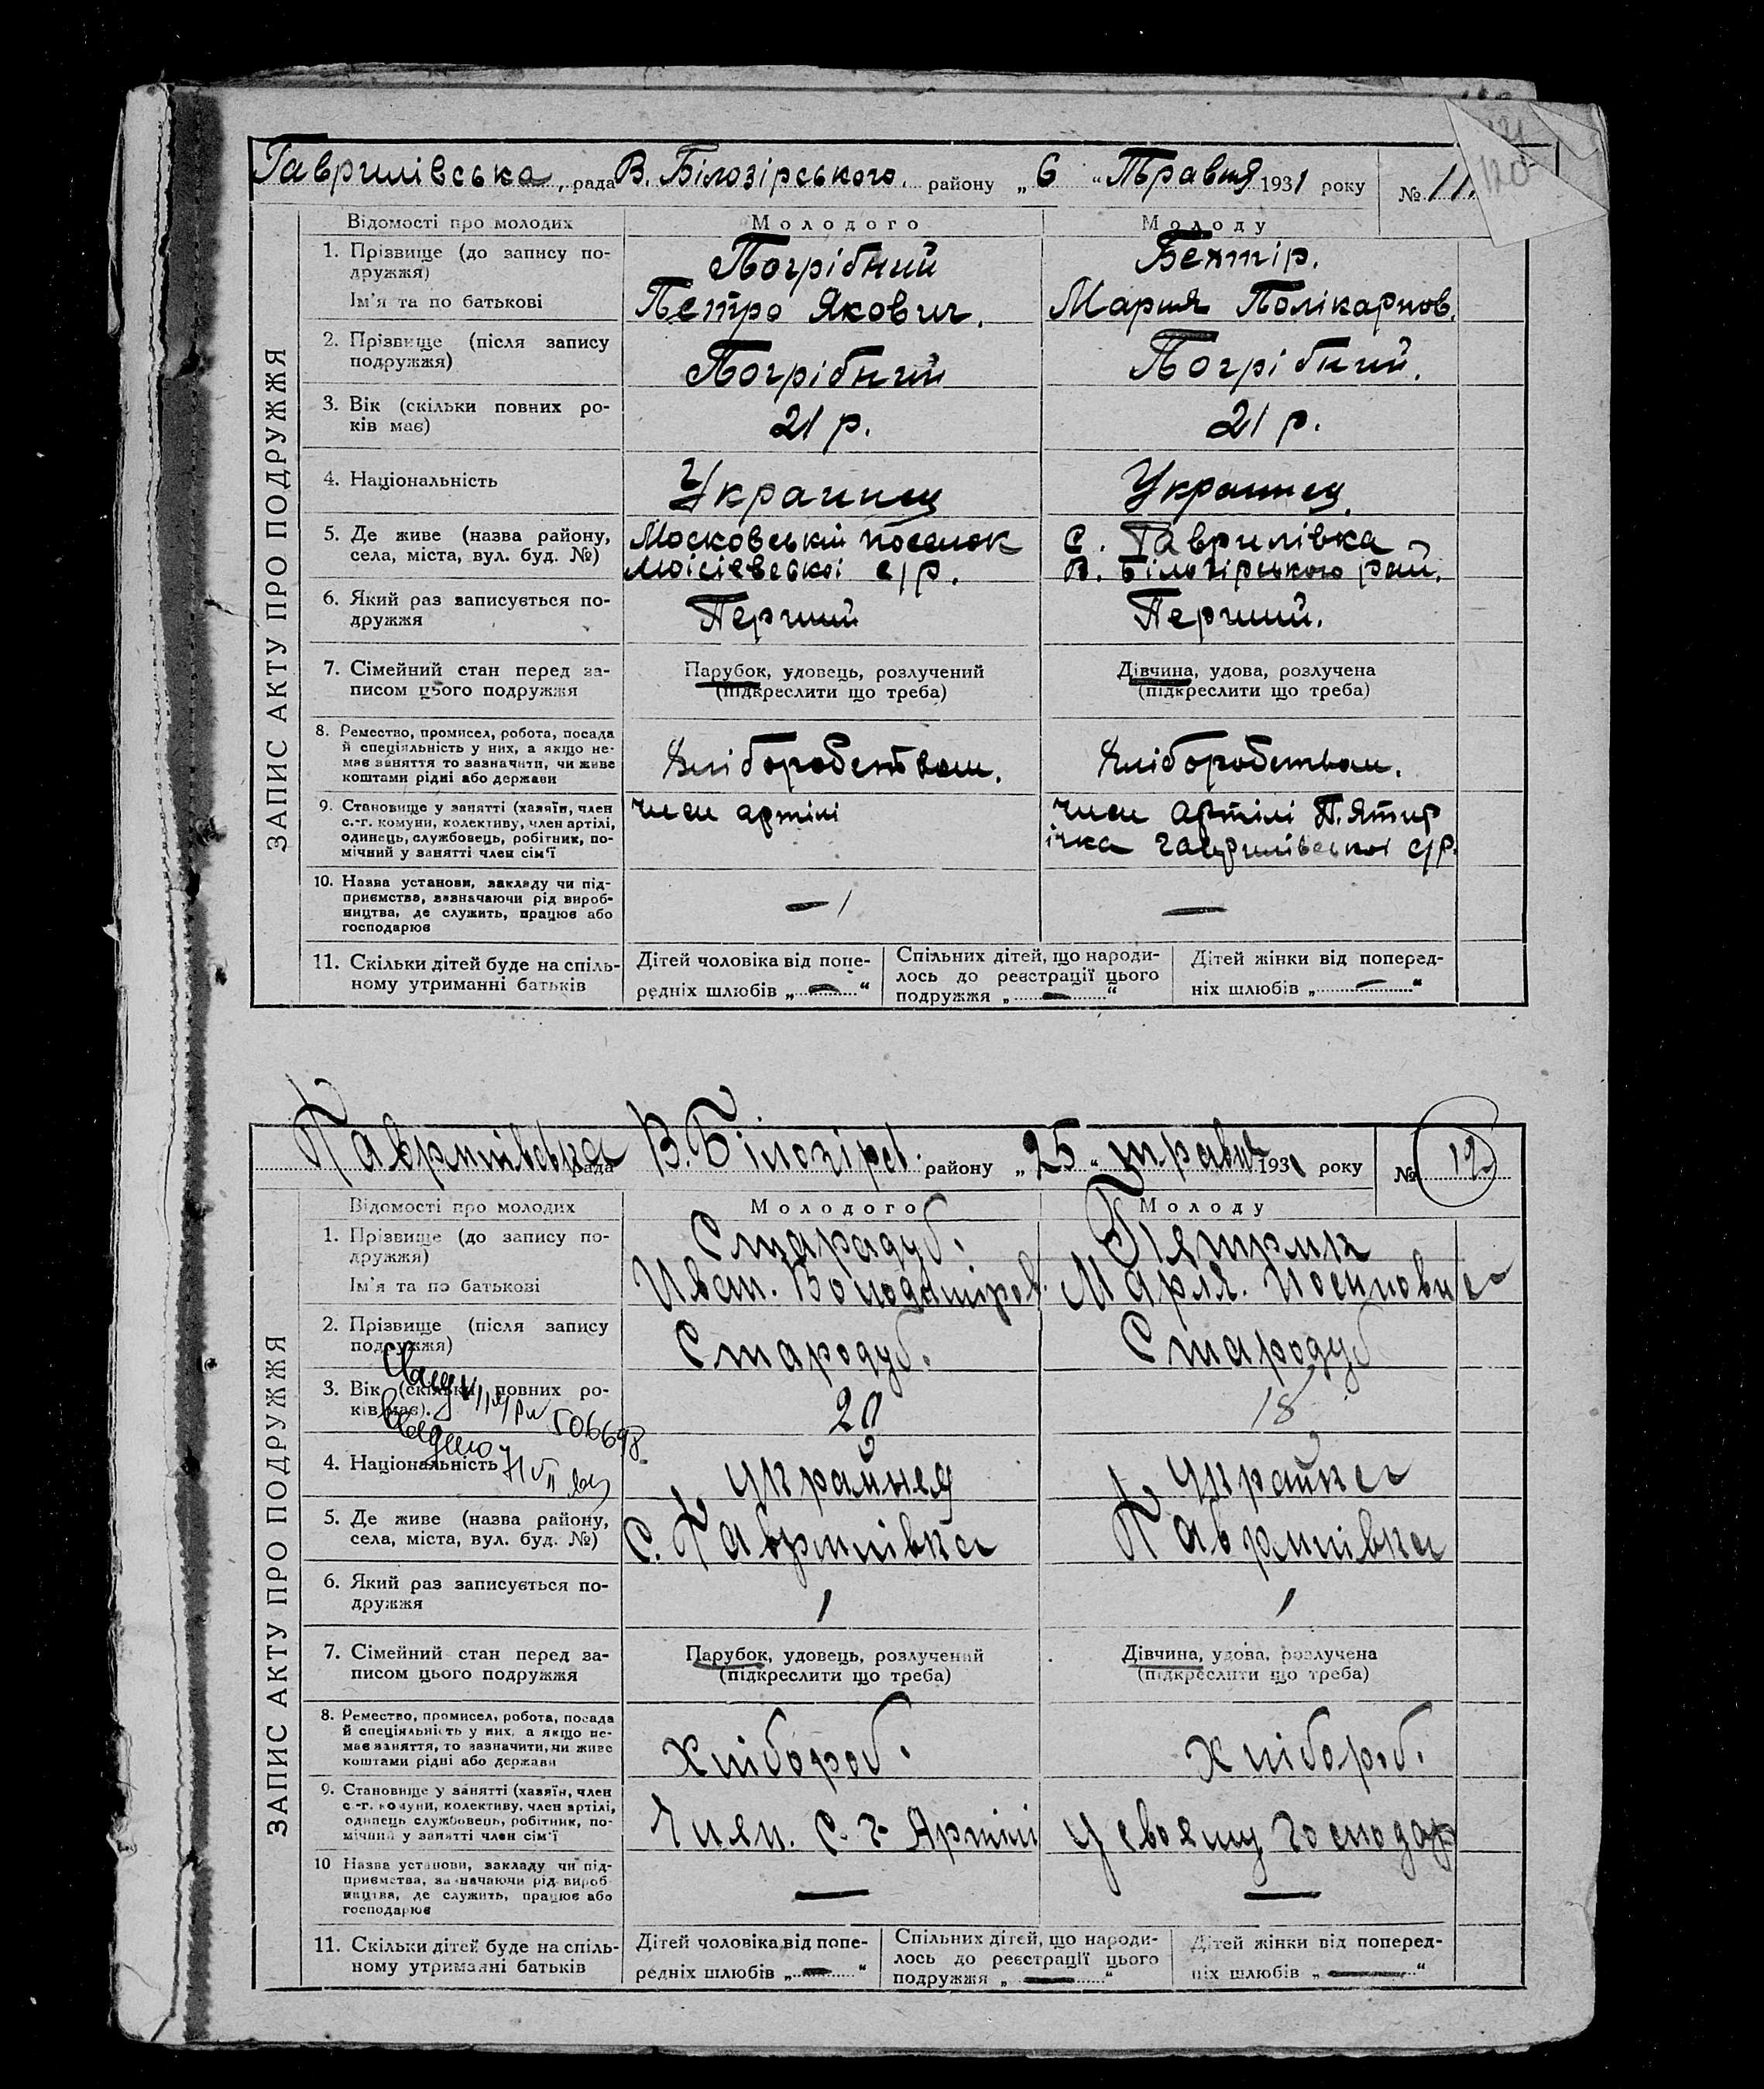 120
Гаврилівська рада В. Білозірського району „ 6 “ Травня 1931 року № 11.
ЗАПИС АКТУ ПРО ПОДРУЖЖЯ
Відомості про молодих Молодого Молоду
1. Прізвище (до запису по-
дружжя) Погрібний
Ім'я та по батькові Петро Якович. Мария Полікарпов.
2. Прізвище (після запису
подружжя) Погрібний Погрібний.
3. Вік (скільки повних ро-
ків має) 21 р. 21 р.
4. Національність Украинец Украинец
5. Де живе (назва району, Московський поселок с. Гаврилівка
села, міста, вул. буд. №) Моісіевскоі с/р. В. Білозірського рай.
6. Який раз записується по-
дружжя Перший Перший.
7. Сімейний стан перед за- Парубок, удовець, розлучений Дівчина, удова, розлучена
писом цього подружжя (підкреслити що треба) (підкреслити що треба)
8. Ремество, промисел, робота, посада
й спеціяльність у них, а якщо не-
має заняття то зазначити, чи живе
коштами рідні або держави Хліборобством. Хліборобством.
9. Становище у занятті (хазяїн, член член артілі член артілі П.ятир
с.-г. комуни, колективу, член артілі,
одинець, службовець, робітник, по- ічка гаврилівськоі с/р.
мічний у занятті член сім'ї
10. Назва установи, закладу чи під-
приємства, зазначаючи рід вироб-
ництва, де служить, працює або — —
господарює
11. Скільки дітей буде на спіль-
ному утриманні батьків
Дітей чоловіка від попе-
редніх шлюбів „ — “
Спільних дітей, що народи-
лось до реєстрації цього
подружжя „ — “
Дітей жінки від поперед-
ніх шлюбів „ — “
Гаврилівська рада В. Білозірсь. району „ 25 “ травня 1931 року № 12
ЗАПИС АКТУ ПРО ПОДРУЖЖЯ
Відомості про молодих Молодого Молоду
1. Прізвище (до запису по-
дружжя) Старадуб.
Ім'я та по батькові Иван. Володаміров. Мария. Иосиповна
2. Прізвище (після запису
подружжя) Стародуб. Стародуб
3. Вік (скільки повних ро-
ків має). 20 18
506698
4. Національність Українец Українка
5. Де живе (назва району,
села, міста, вул. буд. №) С. Гаврилівка Гаврилівка
6. Який раз записується по-
дружжя 1 1
7. Сімейний стан перед за- Парубок, удовець, розлучений Дівчина, удова, розлучена
писом цього подружжя (підкреслити що треба) (підкреслити що треба)
8. Ремество, промисел, робота, посада
й спеціяльність у них, а якщо не-
має заняття, то зазначити, чи живе
коштами рідні або держави хлібороб. хлібороб.
9. Становище у занятті (хазяїн, член
с.-г. комуни, колективу, член артілі,
одинець службовець, робітник, по- Член. С. г. Артілі у своєму господар
мічний у занятті член сім'ї
10 Назва установи, закладу чи під-
приємства, зазначаючи рід вироб
ництва, де служить, працює або — —
господарює
11. Скільки дітей буде на спіль-
ному утриманні батьків
Дітей чоловіка від попе-
редніх шлюбів „ — “
Спільних дітей, що народи-
лось до реєстрації цього
подружжя „ — “
Дітей жінки від поперед-
ніх шлюбів „ — “